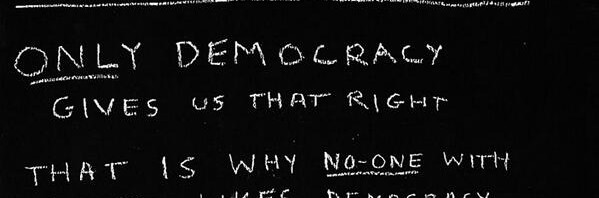 ONLY DEMOCRACY
GIVES US THAT RIGHT
THAT IS WHY NO-ONE WITH
LIKES DEMOCRACY